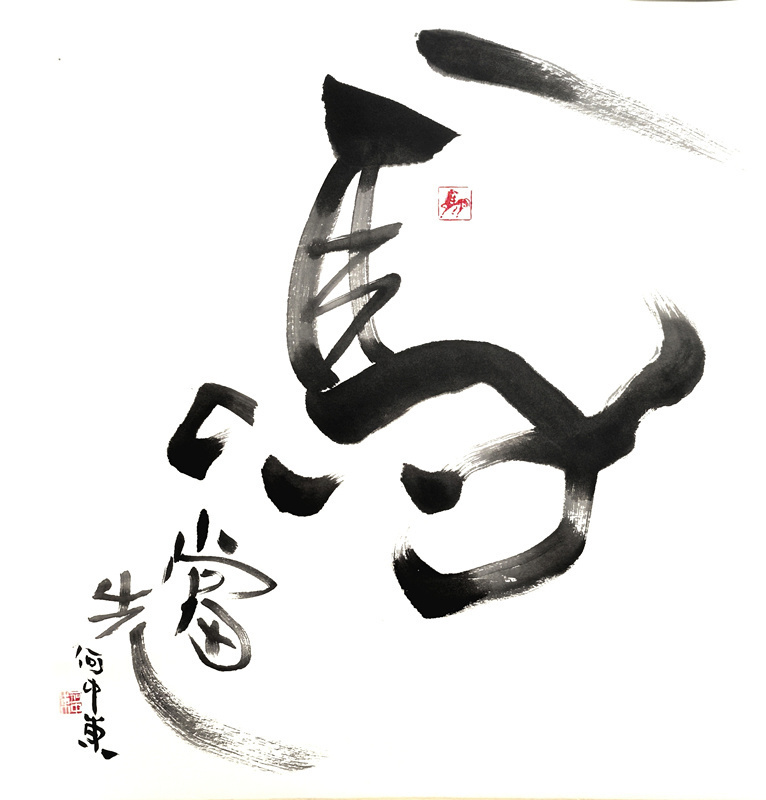 一馬當先
何中東